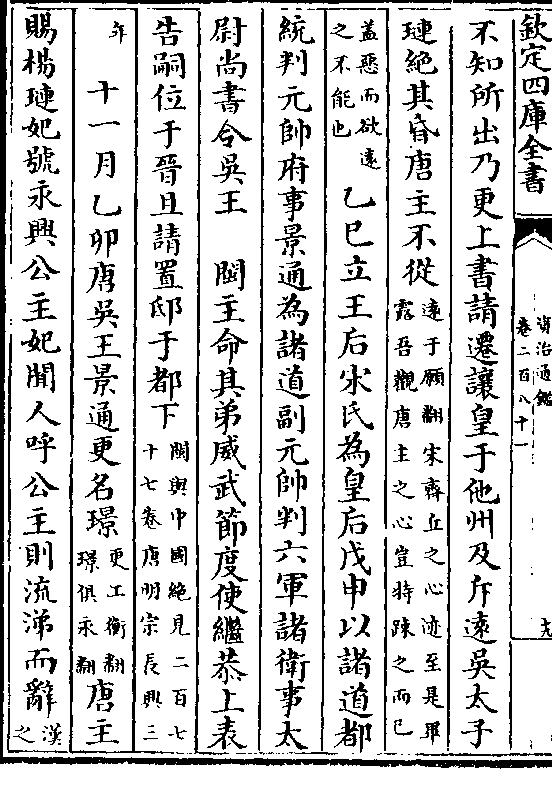 欽定四庫全書
資治通鑑
卷二百八十一
不知所出乃更上書請遷讓皇于他州及斥遠吳太子
璉絕其昏唐主不從遠于願翻宋齊丘之心迹至是畢露吾觀唐主之心豈特踈之而已
蓋惡而欲遠之不能也 乙巳立王后宋氏為皇后戊申以諸道都
統判元帥府事景通為諸道副元帥判六軍諸衛事太
尉尚書令吳王 閩主命其弟威武節度使繼恭上表
告嗣位于晉且請置邸于都下閩與中國絕見二百七十七卷唐明宗長興三
年 十一月乙卯唐吳王景通更名璟更工衡翻璟俱永翻唐主
賜楊璉妃號永興公主妃聞人呼公主則流涕而辭漢之